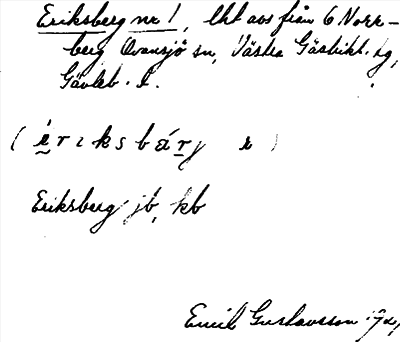 Eriksberg nr 1, lht avs från 6 Norr-
berg Ovansjö sn, Västra Gästrikl. tg,
Gävleb. l.
( é r ɪ k s b á r j   e )
Eriksberg jb, kb
Emil Gustavsson